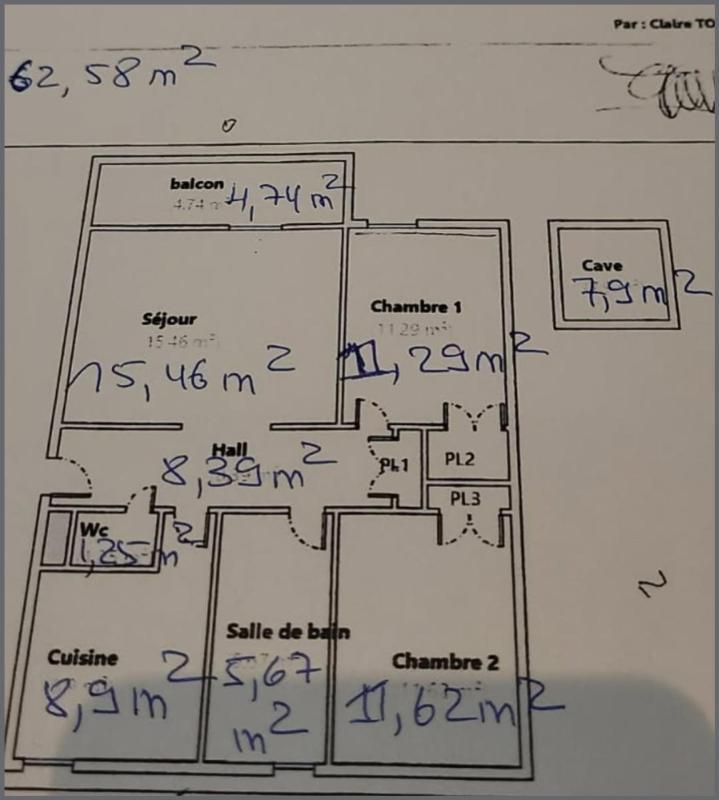 Par : Claire TO
62,58 m²
balcon
4.74 m 4,74 m²
Cave
7,9 m²
Chambre 1
11.29 m²
11,29 m²
Séjour
15.46 m²
15,46 m²
Hall
8,39 m²
PL1
PL2
PL3
Wc
1,25 m²
Salle de bain
5,67
m²
Cuisine
8,9 m²
Chambre 2
11,62 m²